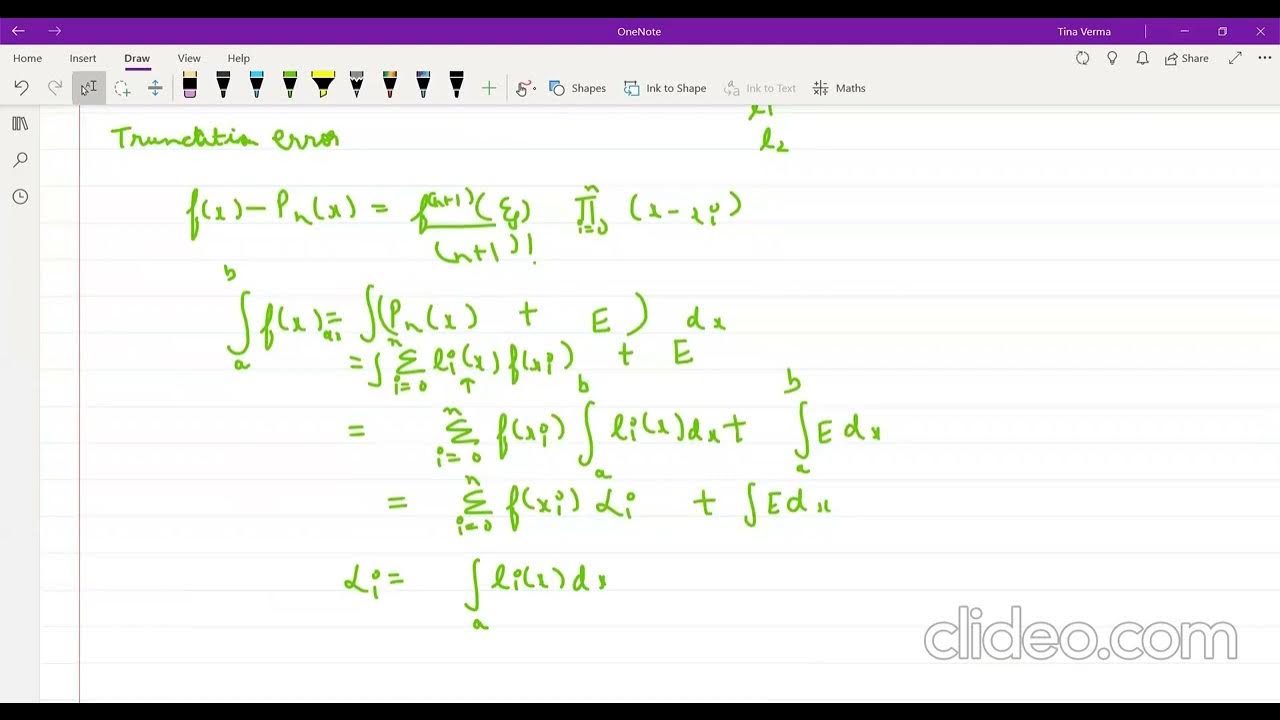 OneNote
Tina Verma
Home Insert Draw View Help
Share
Shapes Ink to Shape Ink to Text Maths
l1
l2
Trunctation error
f(x) - Pn(x) = f^(n+1)(ξ) / (n+1)! ∏_{i=0}^{n} (x - xi)
∫_a^b f(x) dx = ∫(Pn(x) + E) dx
= ∫ Σ_{i=0}^{n} li(x) f(xi) + E
= Σ_{i=0}^{n} f(xi) ∫_a^b li(x) dx + ∫_a^b E dx
= Σ_{i=0}^{n} f(xi) αi + ∫ E dx
αi = ∫_a li(x) dx
clideo.com